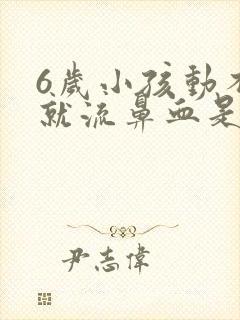 6歲小孩動不
就流鼻血是
尹志偉